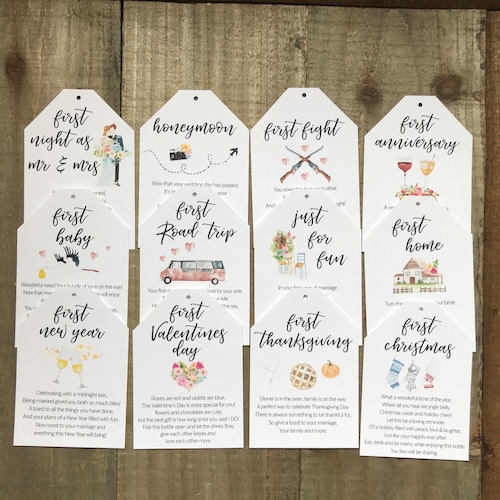 first
night as
mr & mrs
honeymoon
Now that your wedding day has passed,
first fight
first
anniversary
first
baby
first
Road trip
just
for
fun
first
home
first
new year
Celebrating with a midnight kiss,
Being married gives you both so much bliss!
A toast to all the things you have done
And your plans of a New Year filled with fun.
Now toast to your marriage and
everthing this New Year will bring!
first
Valentines
day
Roses are red and violets are blue,
This Valentine's Day is extra special for you!
flowers and chocolates are cute,
but the best gift is how long since you said I DO!
Pop this bottle open and let the drinks flow,
give each other kisses and
love each other more.
first
thanksgiving
Dinner is in the oven, family is on the way.
A perfect way to celebrate Thanksgiving Day
There is always something to be thankful for,
So give a toast to your marriage,
Your family and more.
first
christmas
What a wonderful time of the year,
Where all you hear are jingle bells,
Christmas carols and holiday cheer!
Let this be a loving reminder
Of a holiday filled with peace, love & laughter,
Just like your happily ever after!
Eat, drink and be merry, while enjoying this bottle
You two will be sharing.